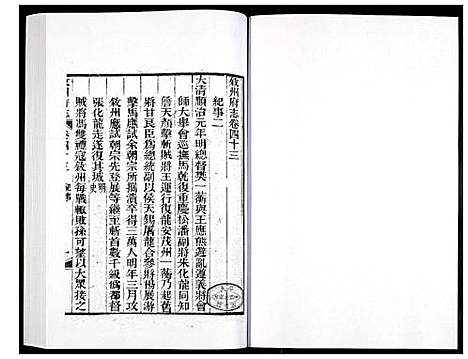 敘州府志卷四十三
紀事二
大清順治元年明總督樊一蘅與王應熊避亂遵義將會
師大舉會巡撫馬乾復重慶松潘副將朱化龍同知
詹天顏擊斬賊將王運行復龍安茂州一蘅乃起舊
將甘良臣爲總統副以侯天錫屠龍合參將楊展游
擊馬應試余朝宗所攜潰卒得三萬人明年三月攻
敘州應試朝宗先登展等繼至斬首數千級僞都督
張化龍走遂復其城明史
賊將馮雙禮寇敘州每戰輒敗孫可望以大衆援之